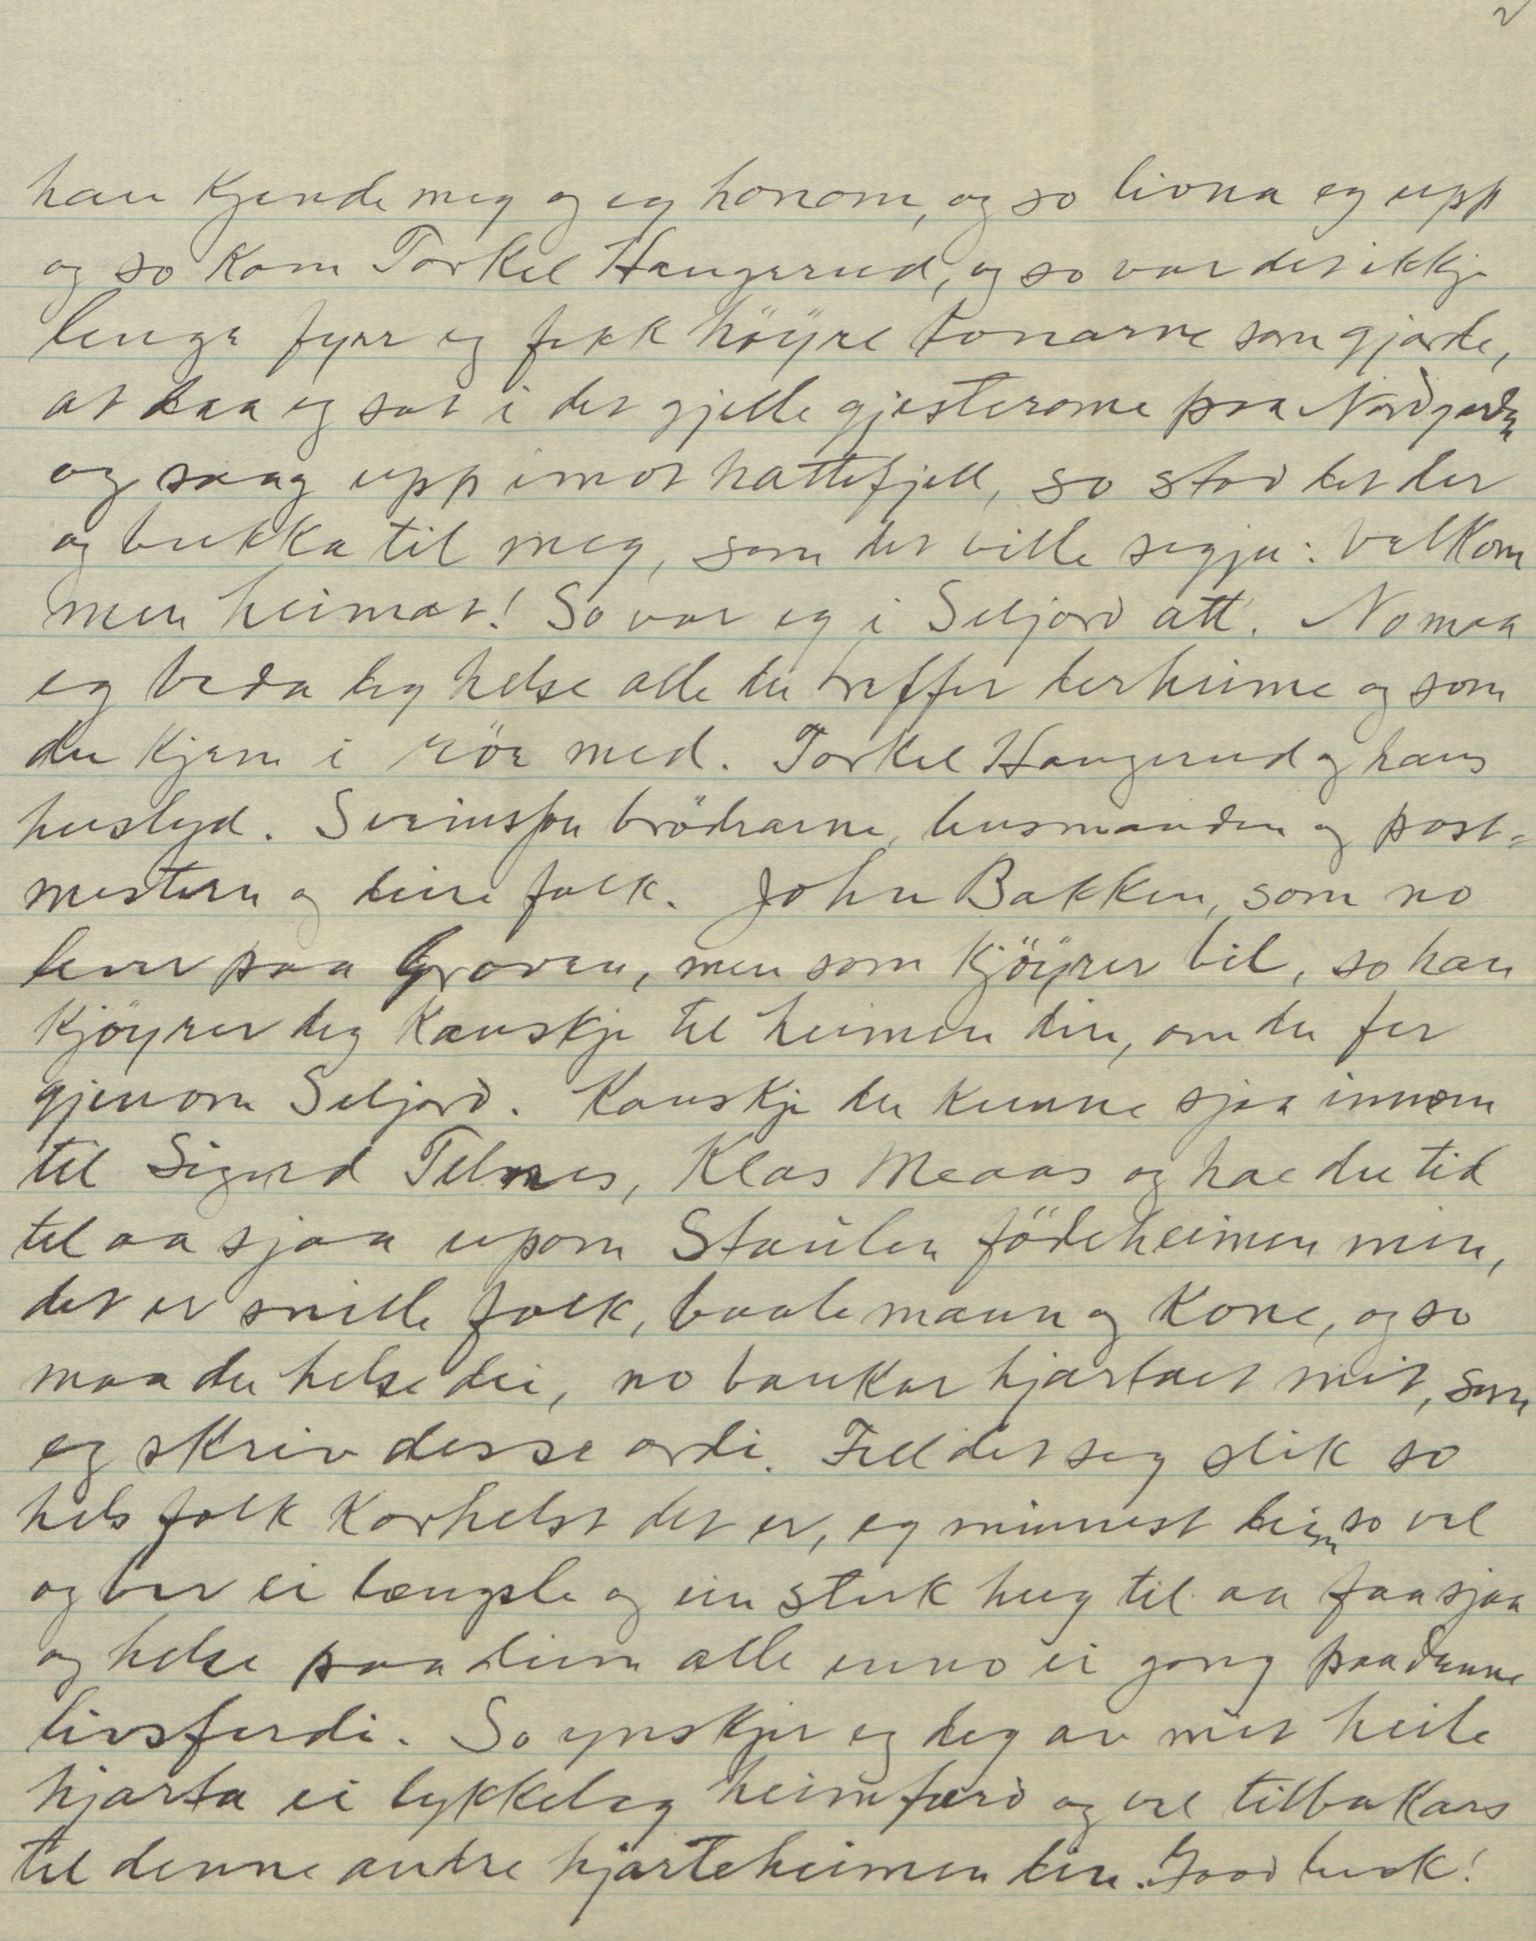 2
han kjende meg og eg honom, og so livna eg upp
og so kom Torkel Haugerud, og so var det ikkje
lenge fyrr eg fekk höyre tonarne som gjorde,
at daa eg sat i det gjelle gjesterome paa Nordgarden
og saag upp imot hattefjell, so stod det der
og bukka til meg, som det ville segja: Velkom
men heimat! So var eg i Seljord att. No maa
eg beda deg helse alle du treffer derheime og som
du kjem i röe med. Torkel Haugerud og hans
huslyd. Sveinsson brödrarne, lensmanden og post=
mestern og deire folk. John Bakken, som no
lever paa Groven, men som kjöyrer bil, so han
kjöyrer deg kanskje til heimen din, om du fer
gjenom Seljord. Kanskje du kunne sjaa innom
til Sigurd Telnes, Klas Meaas og hae du tid
til aa sjaa upom Staulen födeheimen min,
det er snille folk, baade mann og kone, og so
maa du helse dei, no bankar hjartaet mit, som
eg skriv desse ordi. Fell det seg slik so
hels folk korhelst det er, eg minnest deim so vel
og ber ei længsle og ein sterk hug til aa faa sjaa
og helse paa deim alle enno ei gong paa denne
livsferdi. So ynskjer eg deg av mit heile
hjarta ei lykkeleg heimferd og vel tilbakars
til denne andre hjarteheimen din. Good luck!